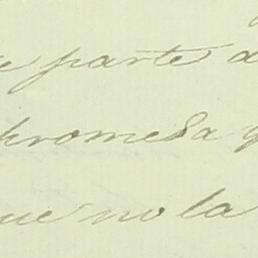 e parte d
promesa q
que no la